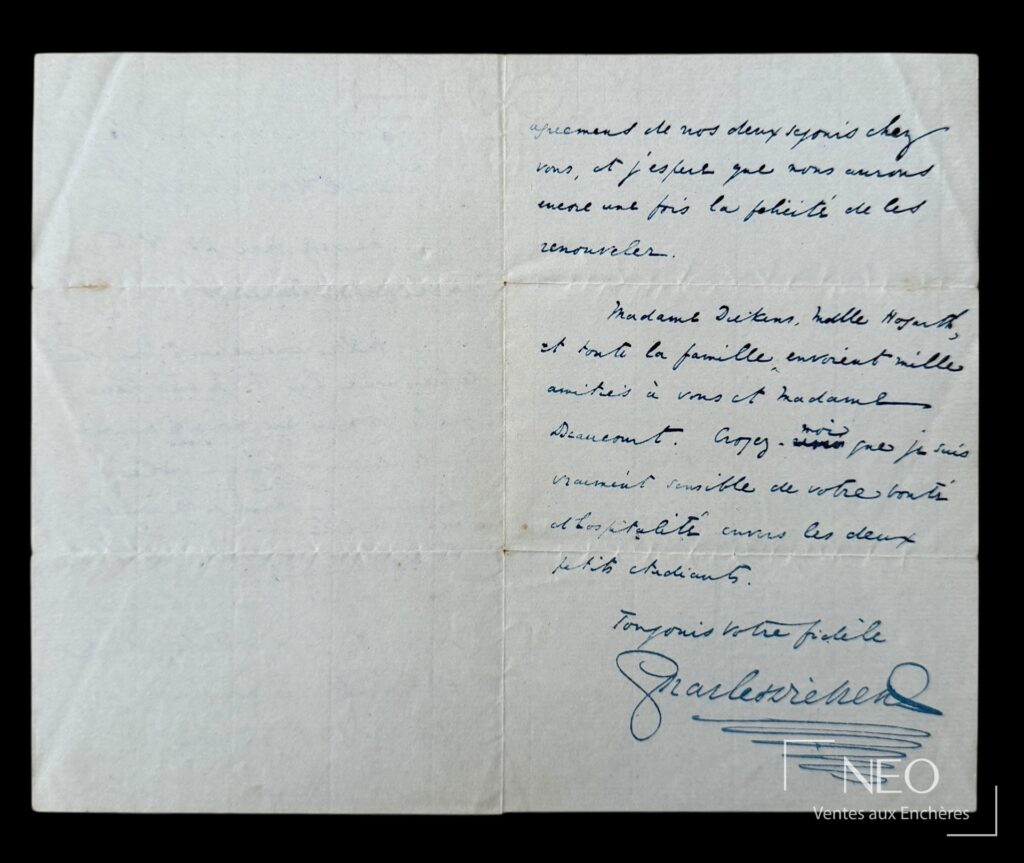 agreement de nos deux sejouis chez
vous, et j'espere que nous aurons
encore une fois la félicité de les
renouveler.
Madame Dickens, Mdlle Hogarth,
et toute la famille, envoient mille
amitiés à vous et Madame
Beaucourt. Croyez-moi que je suis
vraiment sensible de votre bonté
et hospitalité envers les deux
petits etudiants.
Toujouis votre fidèle
Charles Dickens
NEO
Ventes aux Enchères